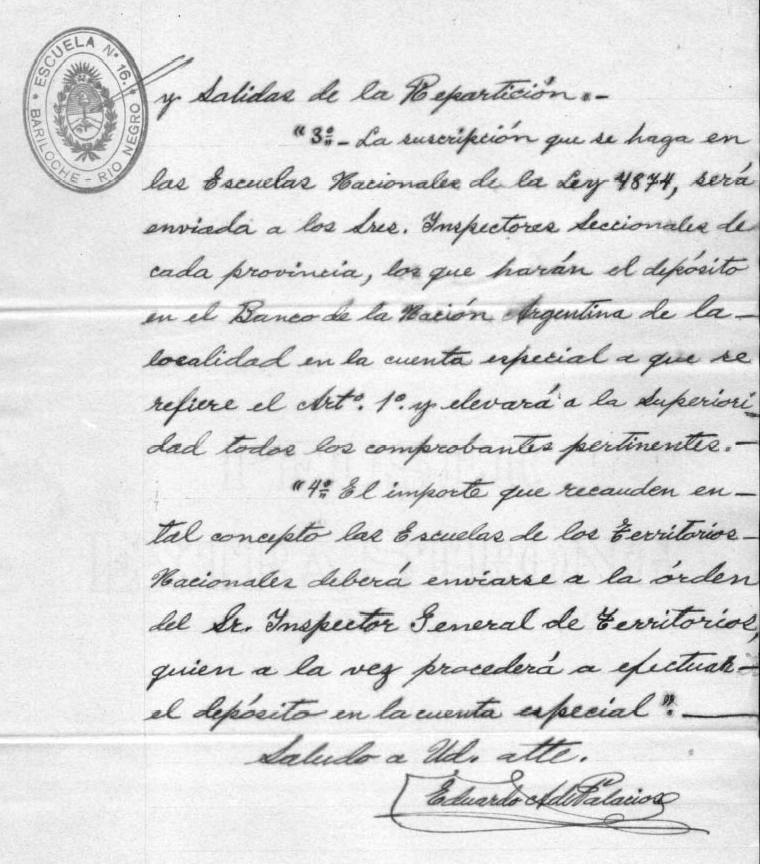 ESCUELA Nº 16.
BARILOCHE - RIO NEGRO
y Salidas de la Repartición.-
"3º- La suscripción que se haga en
las Escuelas Nacionales de la Ley 4874, será
enviada a los Sres. Inspectores Seccionales de
cada provincia, los que harán el depósito
en el Banco de la Nación Argentina de la-
localidad en la cuenta especial a que se
refiere el Artº. 1º. y elevará a la Superiori
dad todos los comprobantes pertinentes.-
"4º El importe que recauden en-
tal concepto las Escuelas de los Territorios-
Nacionales deberá enviarse a la órden
del Sr. Inspector General de Territorios,
quien a la vez procederá a efectuar-
el depósito en la cuenta especial".-
Saludo a Ud. atte.
Eduardo A. de Palacios